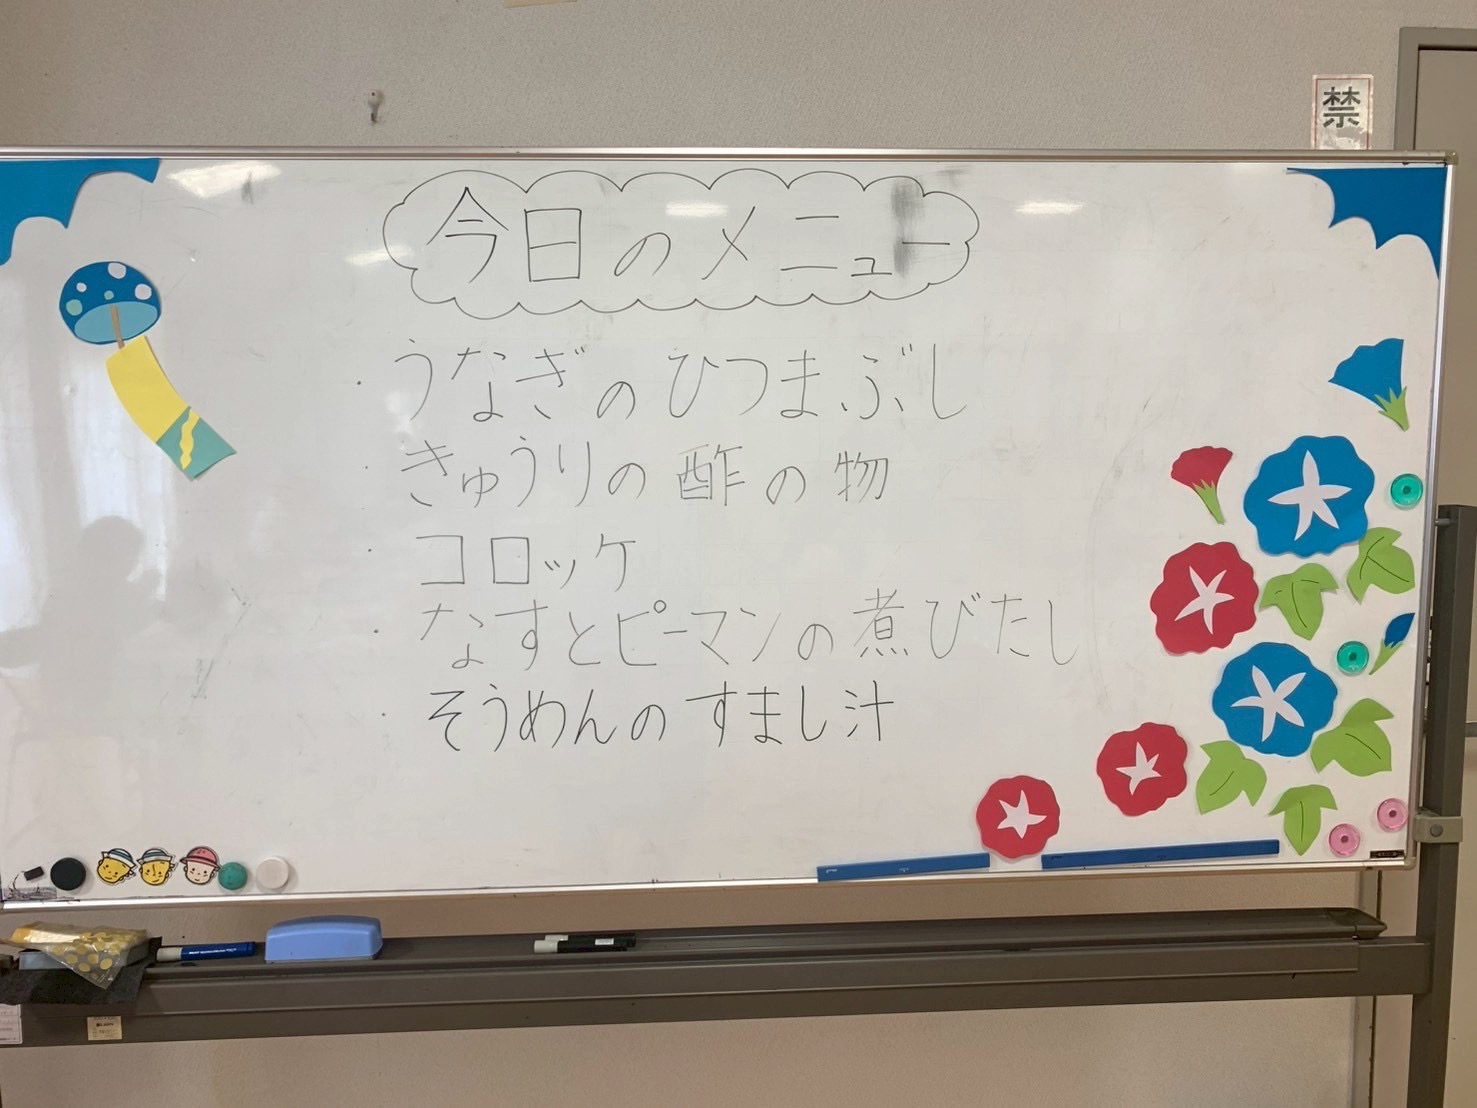 禁
今日のメニュー
・うなぎのひつまぶし
・きゅうりの酢の物
・コロッケ
・なすとピーマンの煮びたし
・そうめんのすまし汁